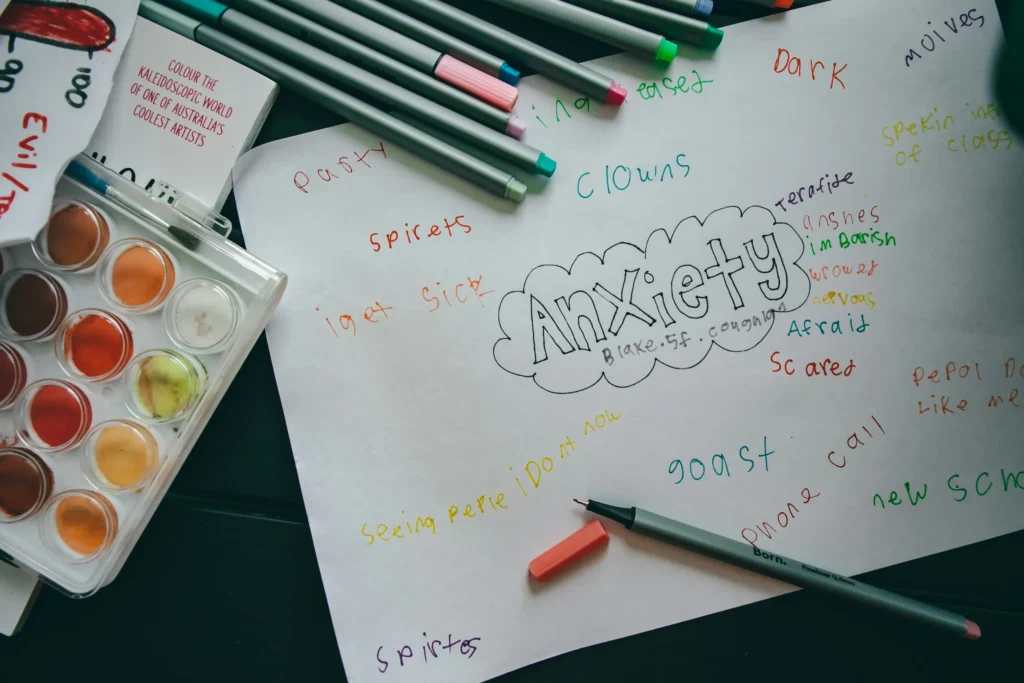 -100
-90
Evil/
COLOUR THE
KALEIDOSCOPIC WORLD
OF ONE OF AUSTRALIA'S
COOLEST ARTISTS
moives
Dark
ing
party
clowns
spekin
of class
Terafide
spirets
anshes
imBarish
iget sick
wrowed
Anxiety
nervous
Blake.sf.
Afraid
Scared
pepol Do
Like me
seeing peple iDont now
goast
phone call
new scho
Born.
spirtes